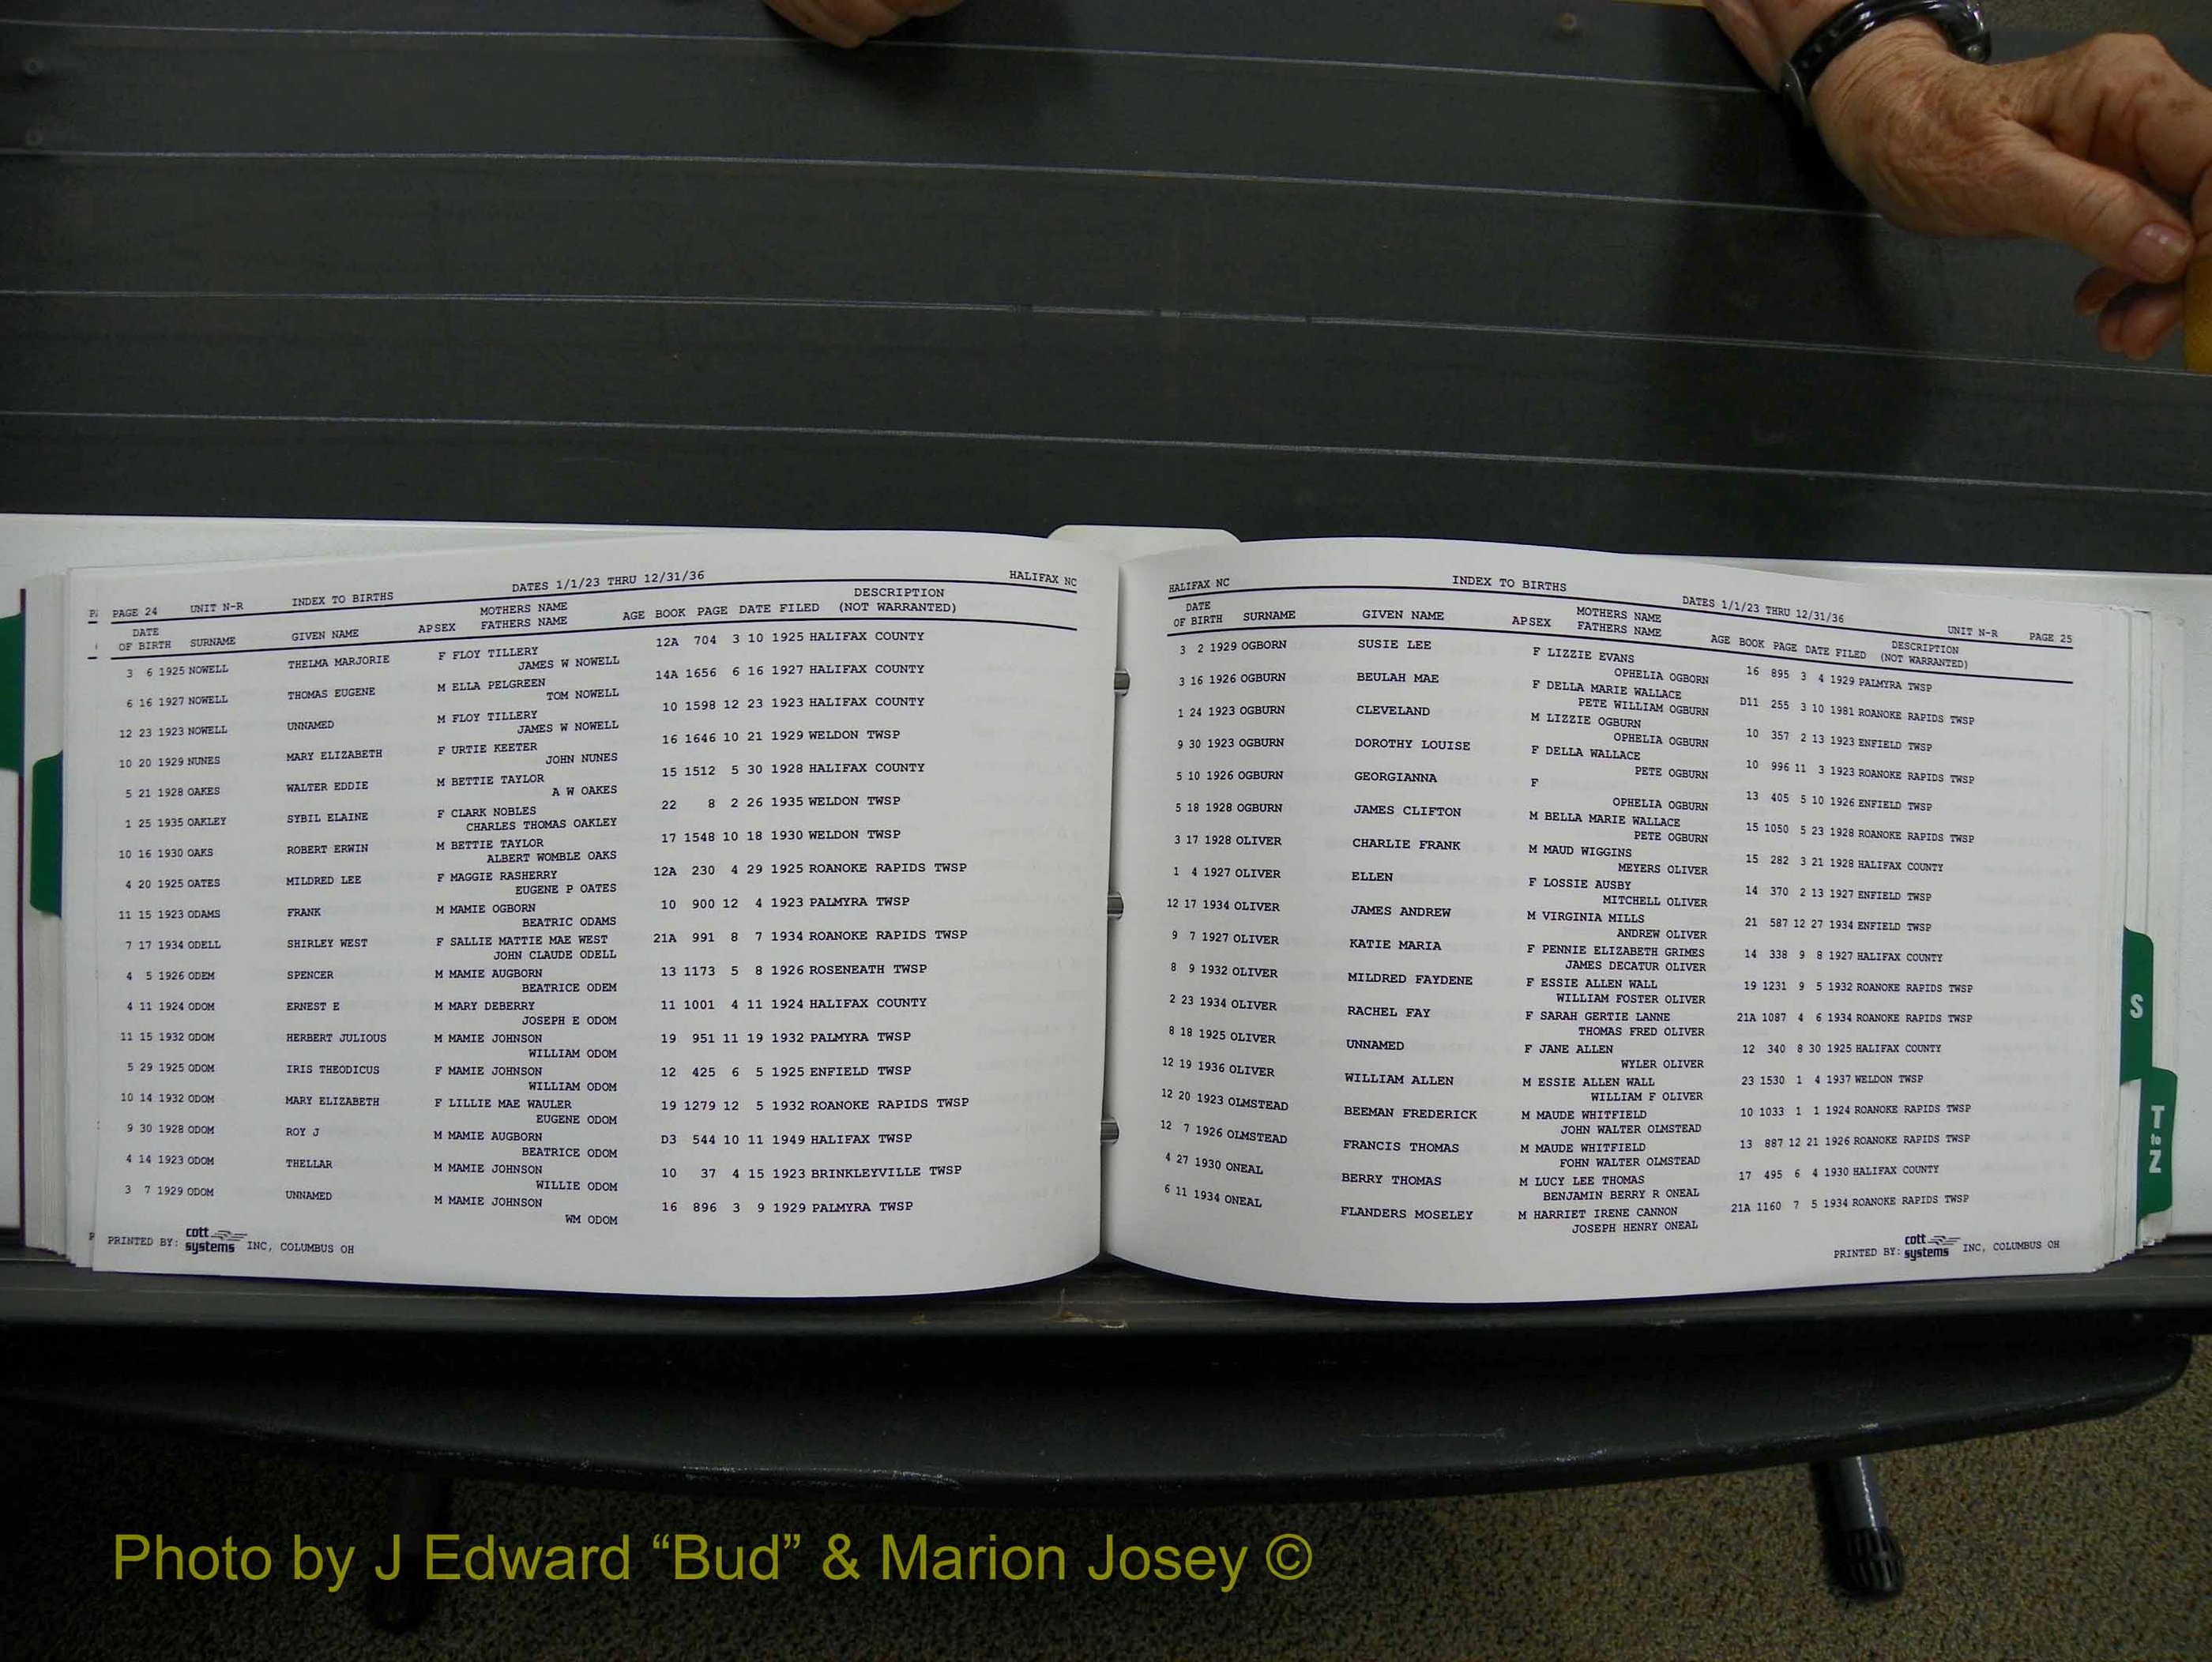 PAGE 24 UNIT N-R INDEX TO BIRTHS DATES 1/1/23 THRU 12/31/36 HALIFAX NC
DATE OF BIRTH SURNAME GIVEN NAME APSEX MOTHERS NAME FATHERS NAME AGE BOOK PAGE DATE FILED DESCRIPTION (NOT WARRANTED)
3 6 1925 NOWELL THELMA MARJORIE F FLOY TILLERY 12A 704 3 10 1925 HALIFAX COUNTY
JAMES W NOWELL
6 16 1927 NOWELL THOMAS EUGENE M ELLA PELGREEN 14A 1656 6 16 1927 HALIFAX COUNTY
TOM NOWELL
12 23 1923 NOWELL UNNAMED M FLOY TILLERY 10 1598 12 23 1923 HALIFAX COUNTY
JAMES W NOWELL
10 20 1929 NUNES MARY ELIZABETH F URTIE KEETER 16 1646 10 21 1929 WELDON TWSP
JOHN NUNES
5 21 1928 OAKES WALTER EDDIE M BETTIE TAYLOR 15 1512 5 30 1928 HALIFAX COUNTY
A W OAKES
1 25 1935 OAKLEY SYBIL ELAINE F CLARK NOBLES 22 8 2 26 1935 WELDON TWSP
CHARLES THOMAS OAKLEY
10 16 1930 OAKS ROBERT ERWIN M BETTIE TAYLOR 17 1548 10 18 1930 WELDON TWSP
ALBERT WOMBLE OAKS
4 20 1925 OATES MILDRED LEE F MAGGIE RASHERRY 12A 230 4 29 1925 ROANOKE RAPIDS TWSP
EUGENE P OATES
11 15 1923 ODAMS FRANK M MAMIE OGBORN 10 900 12 4 1923 PALMYRA TWSP
BEATRIC ODAMS
7 17 1934 ODELL SHIRLEY WEST F SALLIE MATTIE MAE WEST 21A 991 8 7 1934 ROANOKE RAPIDS TWSP
JOHN CLAUDE ODELL
4 5 1926 ODEM SPENCER M MAMIE AUGBORN 13 1173 5 8 1926 ROSENEATH TWSP
BEATRICE ODEM
4 11 1924 ODOM ERNEST E M MARY DEBERRY 11 1001 4 11 1924 HALIFAX COUNTY
JOSEPH E ODOM
11 15 1932 ODOM HERBERT JULIOUS M MAMIE JOHNSON 19 951 11 19 1932 PALMYRA TWSP
WILLIAM ODOM
5 29 1925 ODOM IRIS THEODICUS F MAMIE JOHNSON 12 425 6 5 1925 ENFIELD TWSP
WILLIAM ODOM
10 14 1932 ODOM MARY ELIZABETH F LILLIE MAE WAULER 19 1279 12 5 1932 ROANOKE RAPIDS TWSP
EUGENE ODOM
9 30 1928 ODOM ROY J M MAMIE AUGBORN D3 544 10 11 1949 HALIFAX TWSP
BEATRICE ODOM
4 14 1923 ODOM THELLAR M MAMIE JOHNSON 10 37 4 15 1923 BRINKLEYVILLE TWSP
WILLIE ODOM
3 7 1929 ODOM UNNAMED M MAMIE JOHNSON 16 896 3 9 1929 PALMYRA TWSP
WM ODOM
PRINTED BY: cott systems INC, COLUMBUS OH
HALIFAX NC INDEX TO BIRTHS DATES 1/1/23 THRU 12/31/36 UNIT N-R PAGE 25
DATE OF BIRTH SURNAME GIVEN NAME APSEX MOTHERS NAME FATHERS NAME AGE BOOK PAGE DATE FILED DESCRIPTION (NOT WARRANTED)
3 2 1929 OGBORN SUSIE LEE F LIZZIE EVANS 16 895 3 4 1929 PALMYRA TWSP
OPHELIA OGBORN
3 16 1926 OGBURN BEULAH MAE F DELLA MARIE WALLACE D11 255 3 10 1981 ROANOKE RAPIDS TWSP
PETE WILLIAM OGBURN
1 24 1923 OGBURN CLEVELAND M LIZZIE OGBURN 10 357 2 13 1923 ENFIELD TWSP
OPHELIA OGBURN
9 30 1923 OGBURN DOROTHY LOUISE F DELLA WALLACE 10 996 11 3 1923 ROANOKE RAPIDS TWSP
PETE OGBURN
5 10 1926 OGBURN GEORGIANNA F 13 405 5 10 1926 ENFIELD TWSP
OPHELIA OGBURN
5 18 1928 OGBURN JAMES CLIFTON M BELLA MARIE WALLACE 15 1050 5 23 1928 ROANOKE RAPIDS TWSP
PETE OGBURN
3 17 1928 OLIVER CHARLIE FRANK M MAUD WIGGINS 15 282 3 21 1928 HALIFAX COUNTY
MEYERS OLIVER
1 4 1927 OLIVER ELLEN F LOSSIE AUSBY 14 370 2 13 1927 ENFIELD TWSP
MITCHELL OLIVER
12 17 1934 OLIVER JAMES ANDREW M VIRGINIA MILLS 21 587 12 27 1934 ENFIELD TWSP
ANDREW OLIVER
9 7 1927 OLIVER KATIE MARIA F PENNIE ELIZABETH GRIMES 14 338 9 8 1927 HALIFAX COUNTY
JAMES DECATUR OLIVER
8 9 1932 OLIVER MILDRED FAYDENE F ESSIE ALLEN WALL 19 1231 9 5 1932 ROANOKE RAPIDS TWSP
WILLIAM FOSTER OLIVER
2 23 1934 OLIVER RACHEL FAY F SARAH GERTIE LANNE 21A 1087 4 6 1934 ROANOKE RAPIDS TWSP
THOMAS FRED OLIVER
8 18 1925 OLIVER UNNAMED F JANE ALLEN 12 340 8 30 1925 HALIFAX COUNTY
WYLER OLIVER
12 19 1936 OLIVER WILLIAM ALLEN M ESSIE ALLEN WALL 23 1530 1 4 1937 WELDON TWSP
WILLIAM F OLIVER
12 20 1923 OLMSTEAD BEEMAN FREDERICK M MAUDE WHITFIELD 10 1033 1 1 1924 ROANOKE RAPIDS TWSP
JOHN WALTER OLMSTEAD
12 7 1926 OLMSTEAD FRANCIS THOMAS M MAUDE WHITFIELD 13 887 12 21 1926 ROANOKE RAPIDS TWSP
FOHN WALTER OLMSTEAD
4 27 1930 ONEAL BERRY THOMAS M LUCY LEE THOMAS 17 495 6 4 1930 HALIFAX COUNTY
BENJAMIN BERRY R ONEAL
6 11 1934 ONEAL FLANDERS MOSELEY M HARRIET IRENE CANNON 21A 1160 7 5 1934 ROANOKE RAPIDS TWSP
JOSEPH HENRY ONEAL
PRINTED BY: cott systems INC, COLUMBUS OH
S
T to Z
Photo by J Edward “Bud” & Marion Josey ©